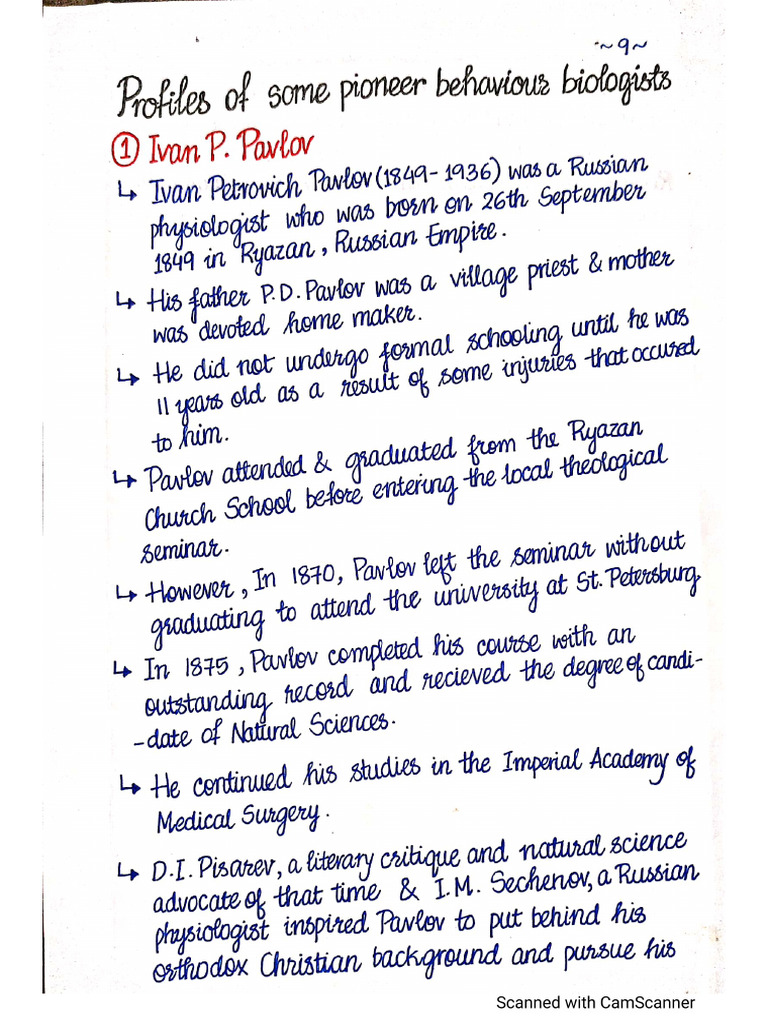 ~9~
Profiles of some pioneer behaviour biologists
① Ivan P. Pavlov
↳ Ivan Petrovich Pavlov (1849-1936) was a Russian
physiologist who was born on 26th September
1849 in Ryazan, Russian Empire.
↳ His father P.D. Pavlov was a village priest & mother
was devoted home maker.
↳ He did not undergo formal schooling until he was
11 years old as a result of some injuries that occured
to him.
↳ Pavlov attended & graduated from the Ryazan
Church School before entering the local theological
seminar.
↳ However, In 1870, Pavlov left the seminar without
graduating to attend the university at St. Petersburg.
↳ In 1875, Pavlov completed his course with an
outstanding record and recieved the degree of candi-
-date of Natural Sciences.
↳ He continued his studies in the Imperial Academy of
Medical Surgery.
↳ D.I. Pisarev, a literary critique and natural science
advocate of that time & I.M. Sechenov, a Russian
physiologist inspired Pavlov to put behind his
orthodox Christian background and pursue his
Scanned with CamScanner